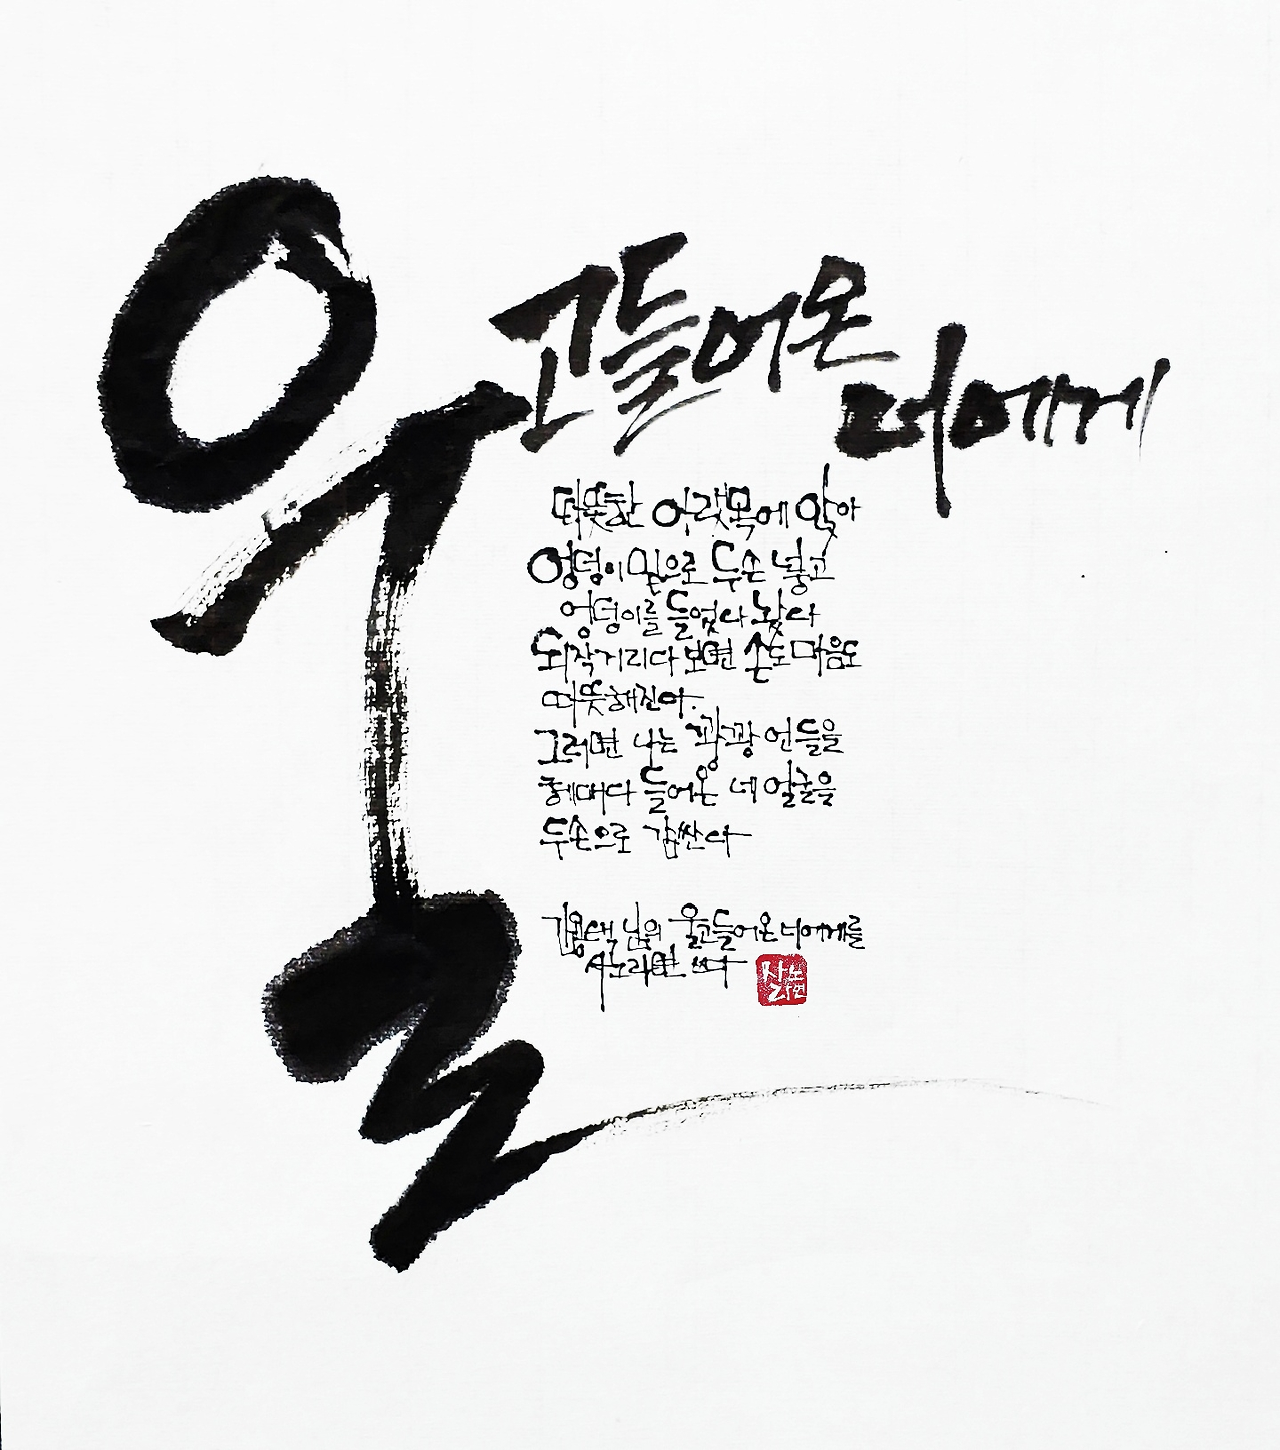 울고 들어온
너에게
따뜻한 아랫목에 앉아
엉덩이 밑으로 두손 넣고
엉덩이를 들었다 놨다
되작거리다 보면 손도 마음도
따뜻해진다.
그러면 나는 꽝꽝 언 들을
헤매다 들어온 네 얼굴을
두손으로 감싼다
김용택 님의 울고들어온너에게를
사노라면 쓰다
사노
라면